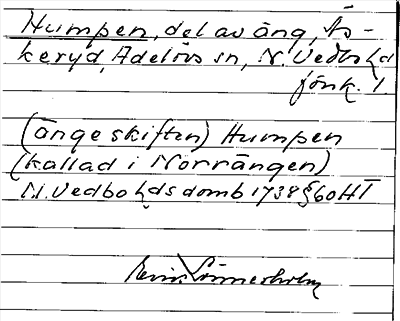 Humpen, del av äng, Ås-
keryd, Adelövs sn, N. Vedbo hd
Jönk. l
(ängeskiften) Humpen
(kallad i Norrängen)
N. Vedbo hds domb 1738 § 60 HT
Sönnerholm